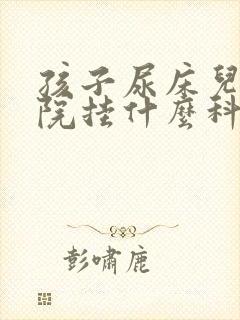 孩子尿床兒
院挂什麽科
彭嘯鹿